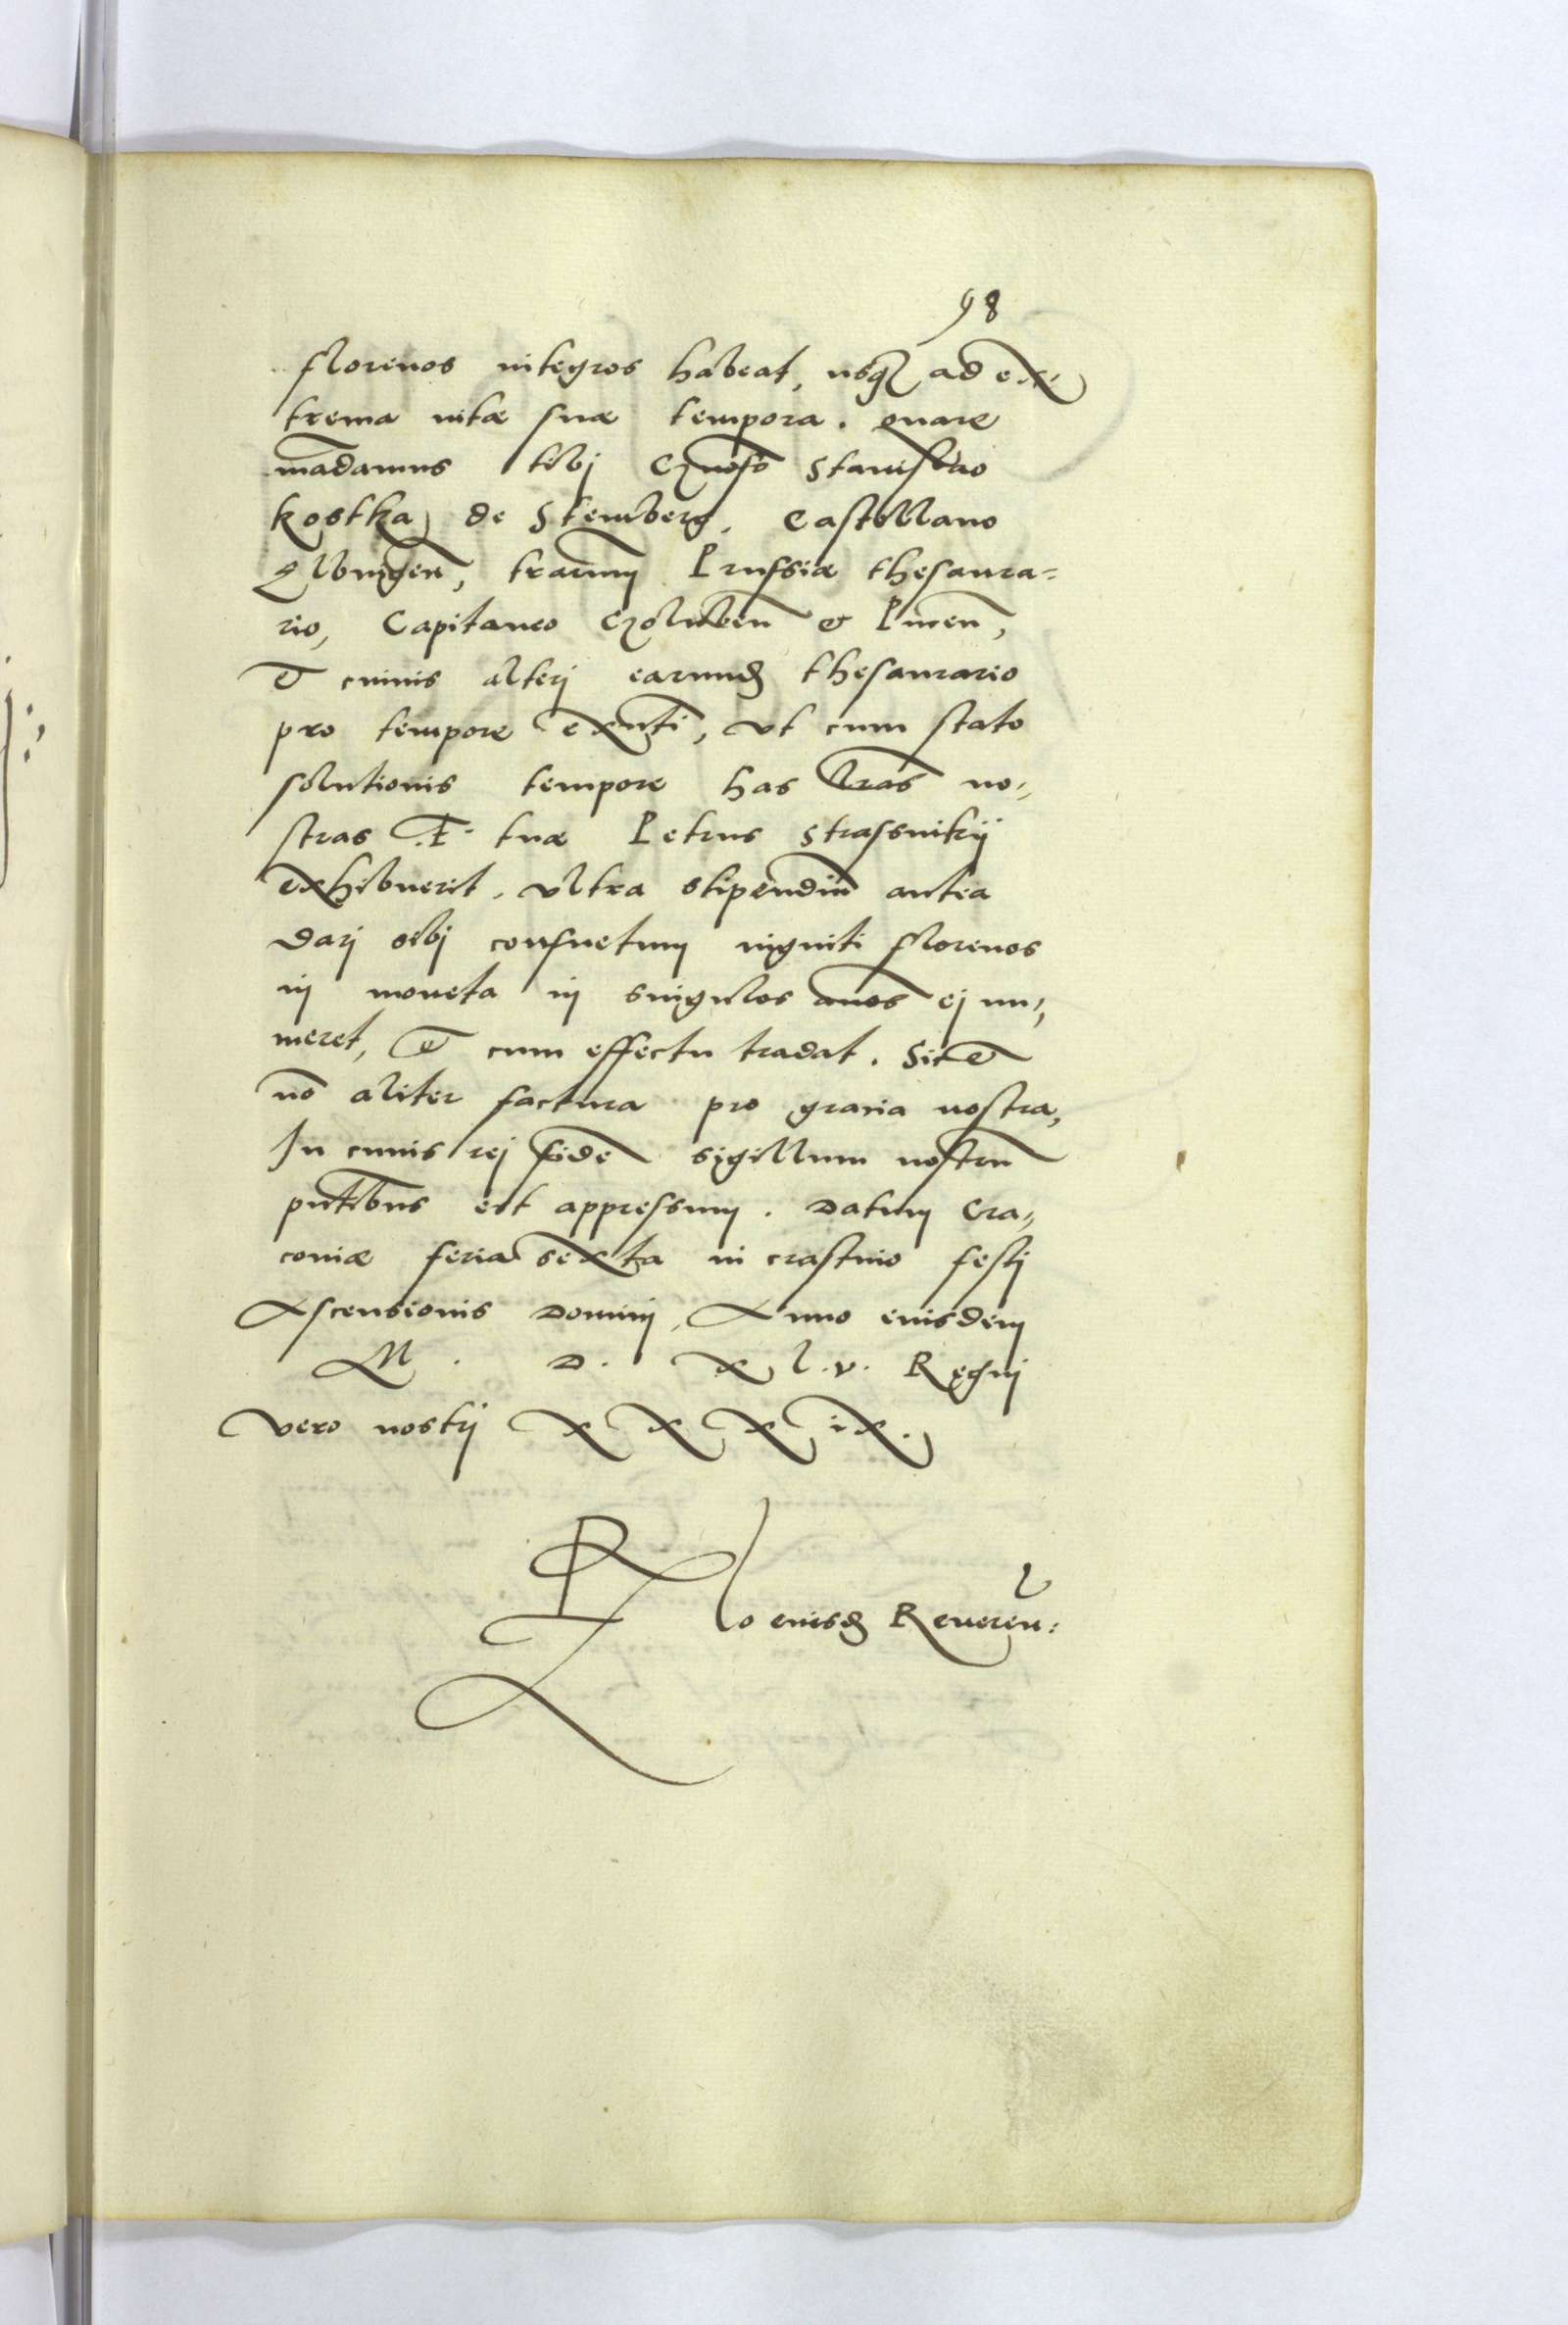 98
florenos integros habeat, usq̃ ad ex-
trema vitæ suæ tempora. quare
mãdamus tibi Gñoso Stanislao
Kostka de Stemberg, Castellano
Elbingeñ, terrarum Prussiæ thesaura=
rio, Capitaneo Gołubeñ &
& cuivis alteri earund thesaurario
pro tempore exñti, ut cum stato
solutionis tempore has lrãs no-
stras F. tuæ Petrus Strassnikij
exhibuerit, ultra stipendiũ antea
dari sibi consuetum viginti florenos
in moneta in singulos anos ei nu-
meret, & cum effectu tradat. Sic &
nõ aliter factura pro gratia nostra,
In cuius rej fidẽ sigillum nostrũ
pñtibus est appressum. Datum Cra-
coviæ feria sexta in crastino festi
Ascensionis Domini, Anno eiusdem
M. D. xl.v. Regni
vero nostri XXXix.
R lo eiusd Reveren: